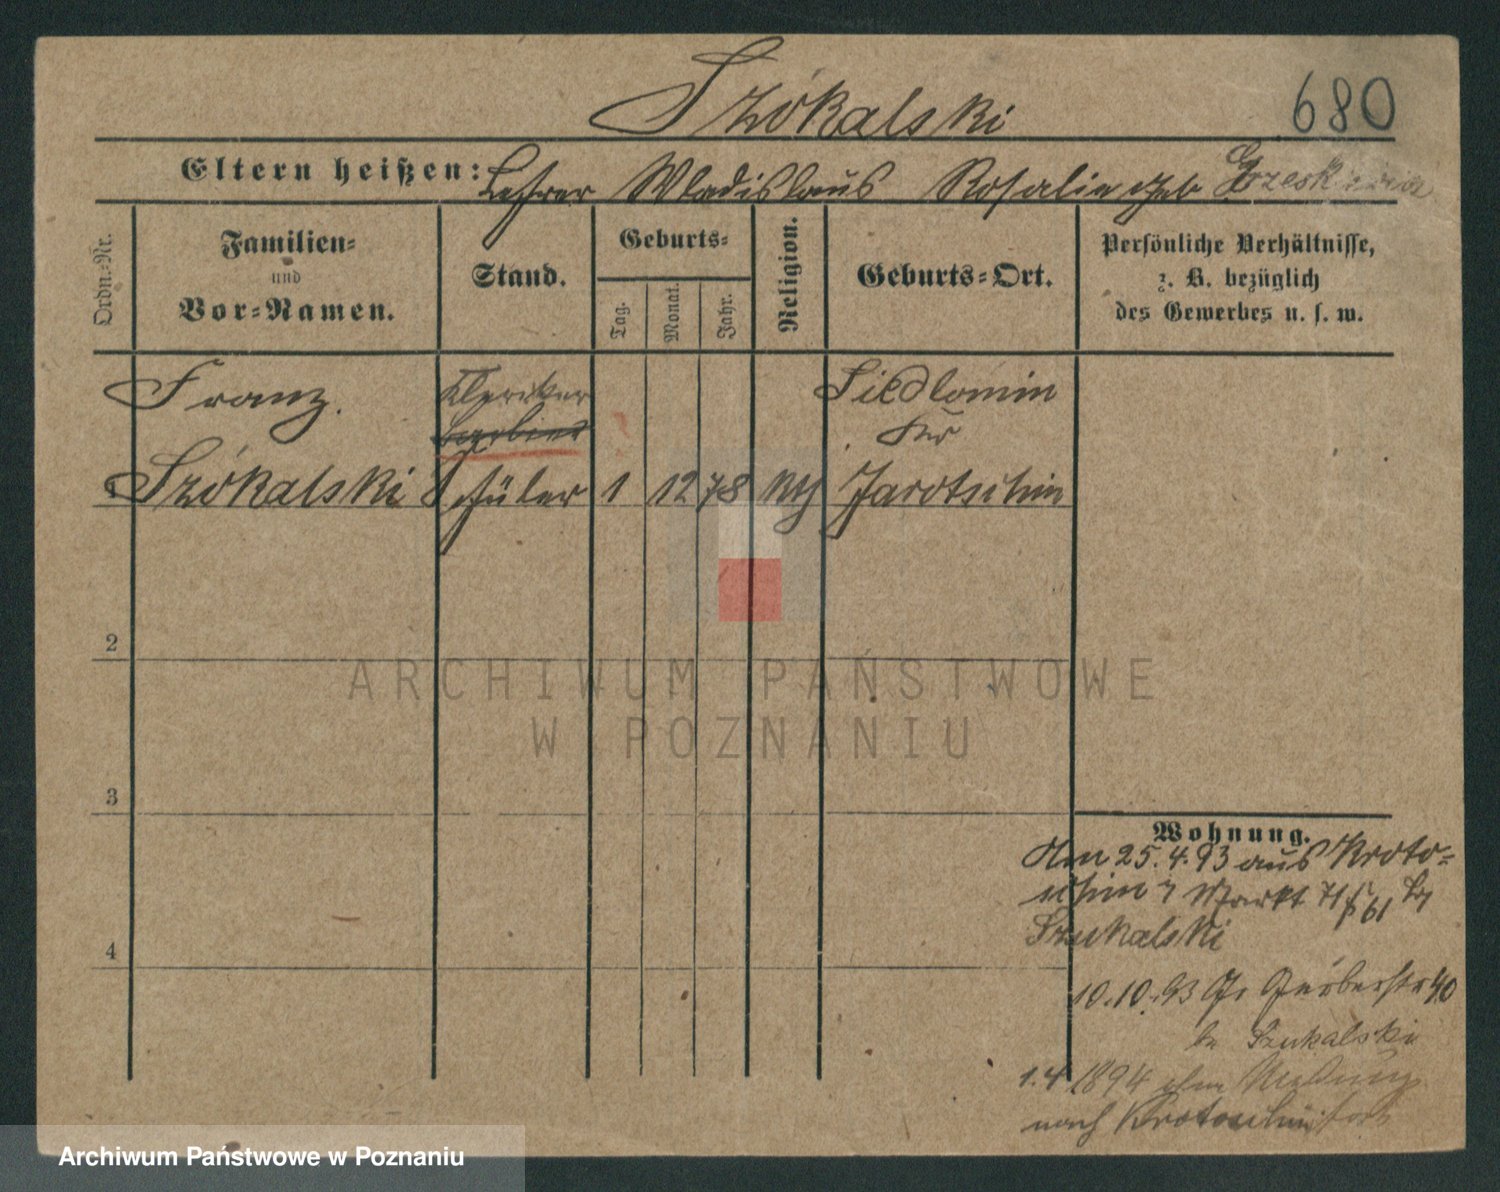 Szókalski
680
Eltern heißen: Lehrer Wladislaus Rosalie geb
Ordn.=Nr.
Familien=
und
Vor=Namen.
Stand.
Geburts=
Tag.
Monat.
Jahr.
Religion.
Geburts=Ort.
Persönliche Verhältnisse,
z. B. bezüglich
des Gewerbes u. s. w.
Franz.
Szókalski
Schüler
1
12
78
kth
Siedlomin
Kr
Jarotschin
2
3
4
Wohnung.
Den 25.4.93 aus Kroto=
schin Markt
Szukalski
10.10.93 Gr Gerberstr 40
be Szukalski
1.4 1894 ohne Meldung
nach Krotoschin fort
ARCHIWUM PAŃSTWOWE
W POZNANIU
Archiwum Państwowe w Poznaniu